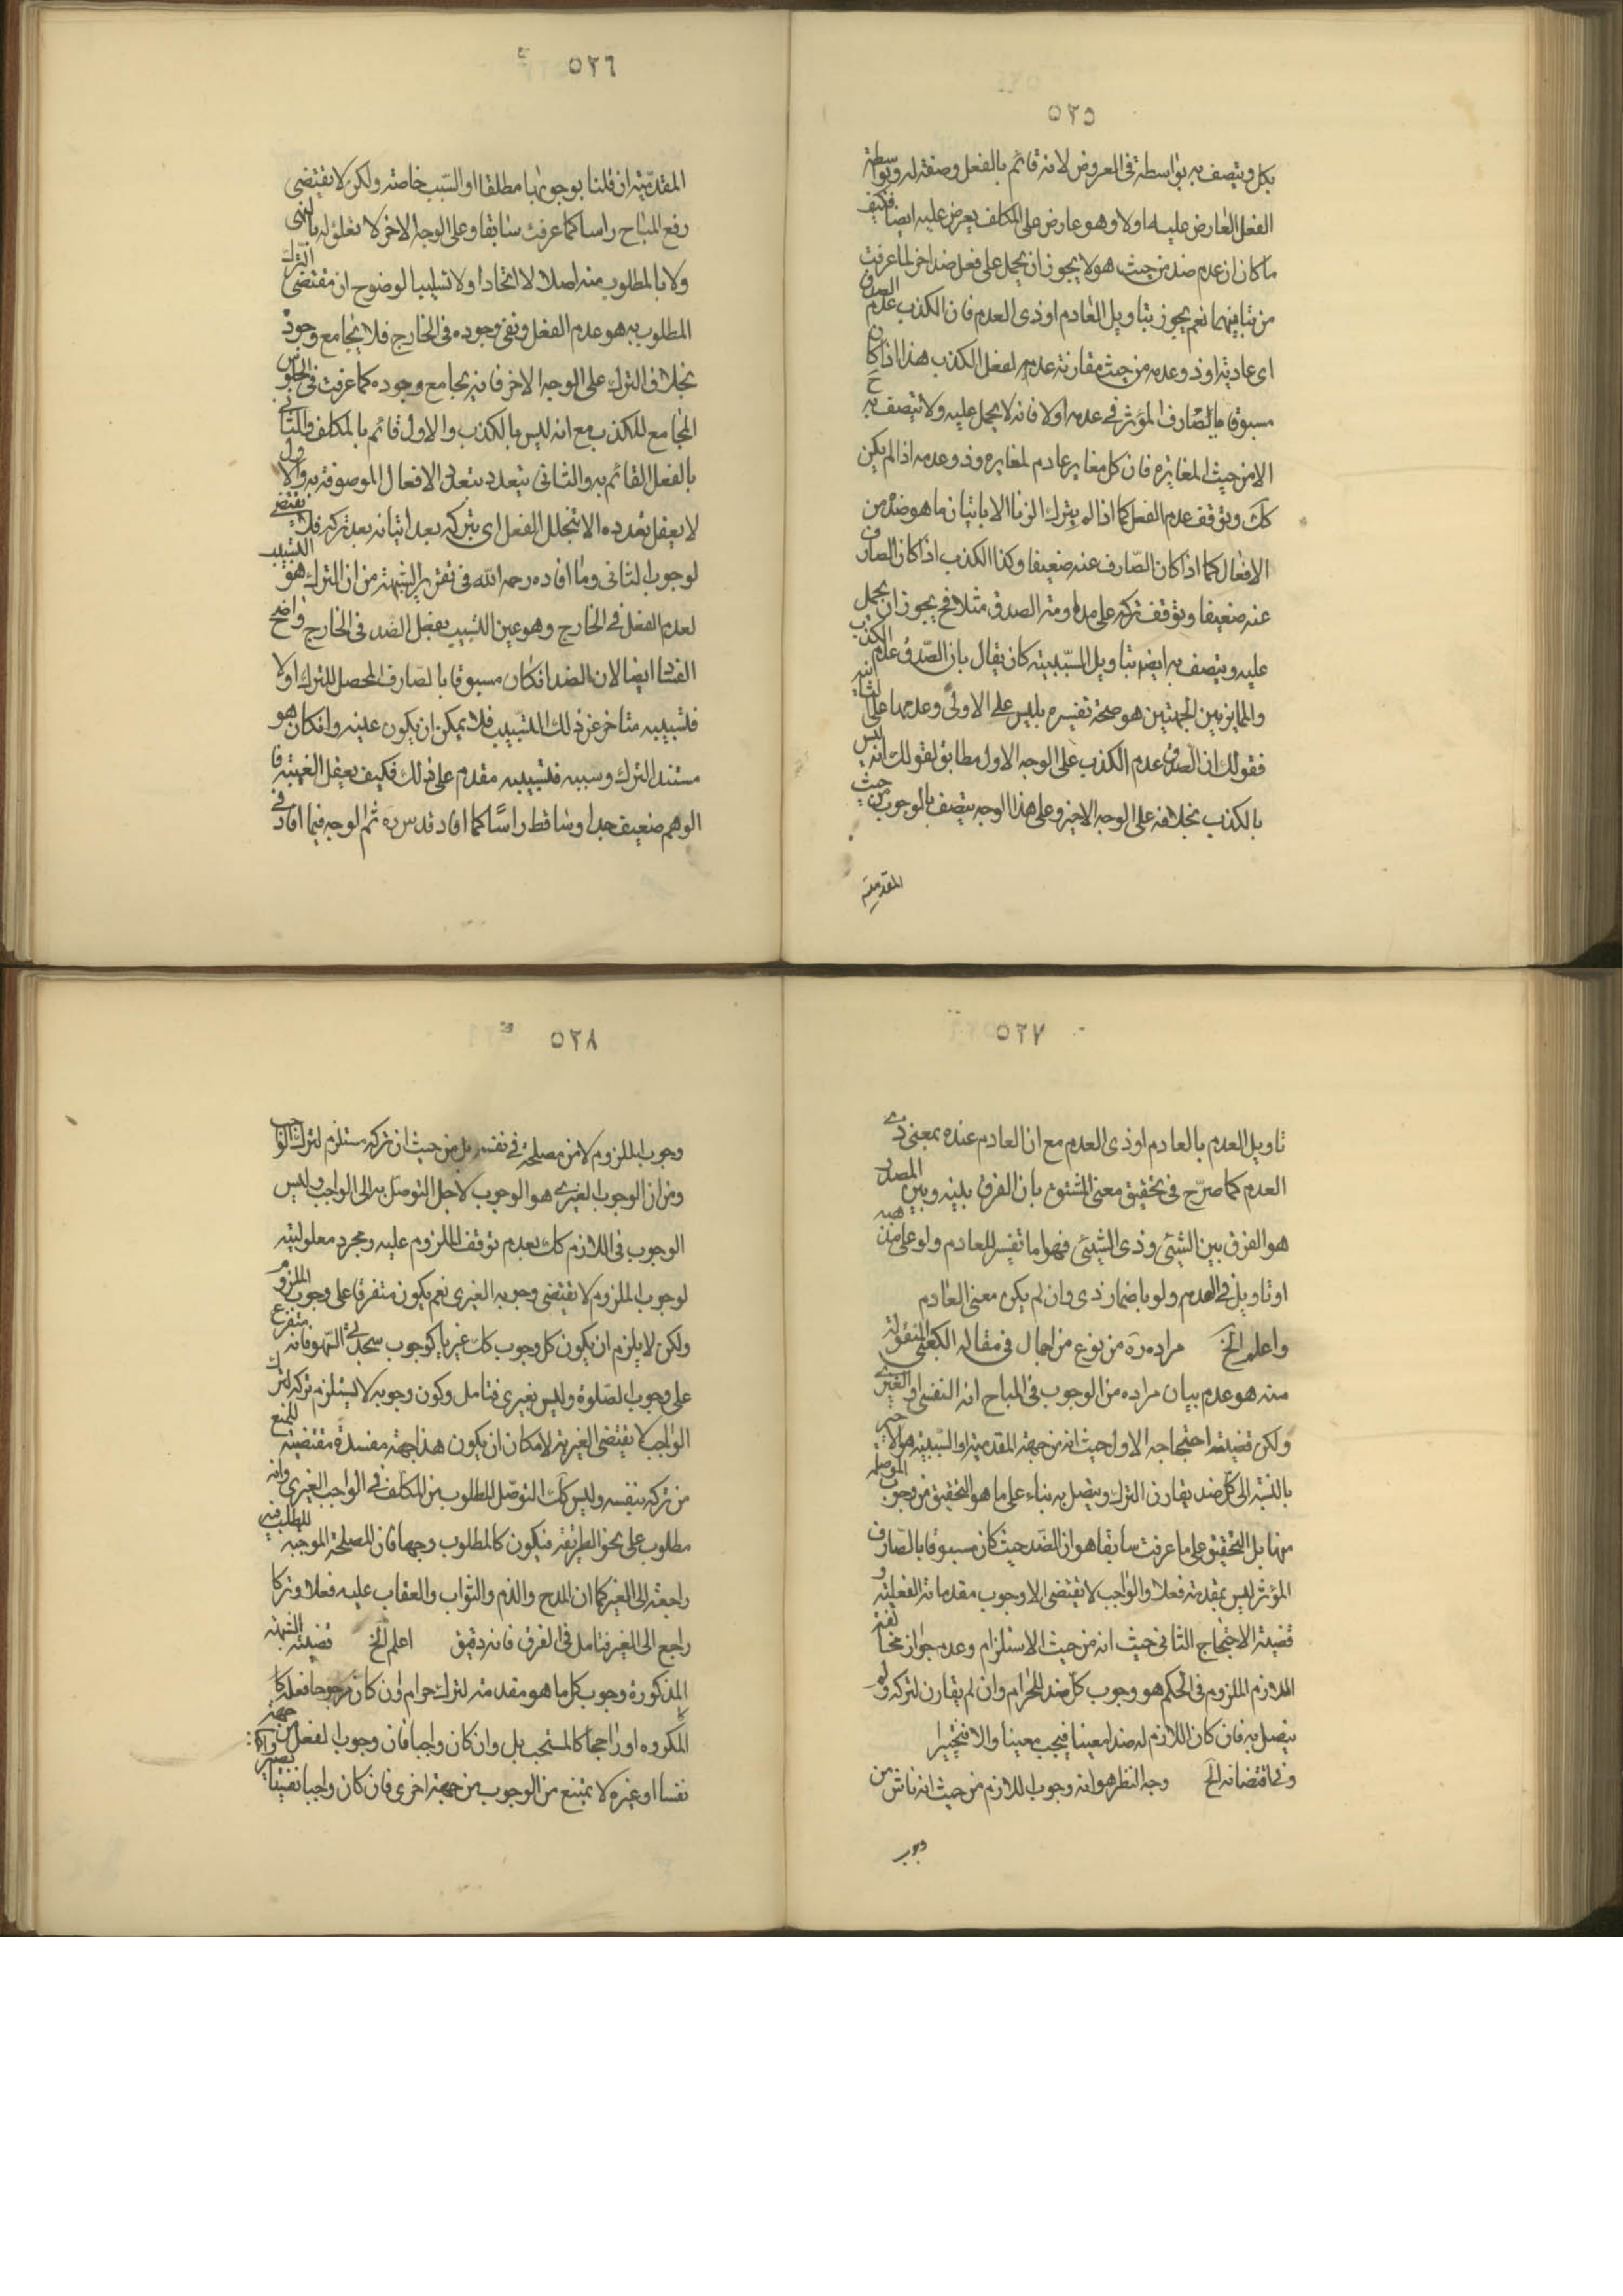 ٥٢٥
بكل ويتصف به بواسطة في العروض لانه قائم بالفعل وصفة له وبواسطة
الفعل العارض عليه اولا وهو عارض على المكلف يعرض عليه ايضا فكيف
ما كان ان عدم ضد من حيث هو لا يجوز ان يحمل على فعل ضد اخر لما عرفت
من تباينهما نعم يجوز بتاويل العادم او ذى العدم فان الكذب عدم الصدق
اى عادمه او ذو عدمه من حيث مقارنة عدمه لفعل الكذب هذا اذا كان
مسبوقا بالصارف المؤثر في عدمه اولا فانه لا يحمل عليه ولا يتصف به ح
الا من حيث المغايرة فان كل مغاير عادم لمغايره وذو عدمه اذا لم يكن
كك وتوقف عدم الفعل كما اذا لم يترك الزنا الا باتيان ما هو ضده من
الافعال كما اذا كان الصّارف عنه ضعيفا وكذا الكذب اذا كان الصارف
عنه ضعيفا وتوقف تركه على مداومة الصدق مثلا فح يجوز ان يحمل
عليه ويتصف به ايضا بتاويل المسّببية كان يقال بان الصّدق عدم الكذب
والمايز بين الجهتين هو صحة تفسيره بليس على الاولى وعدمها على الثانية
فقولك ان الصدق عدم الكذب على الوجه الاول مطابق لقولك انه ليس
بالكذب بخلافه على الوجه الاخير وعلى هذا الوجه يتصف بالوجوب من حيث
المقدمية
٥٢٦
المقدمّية ان قلنا بوجوبها مطلقا او السّبب خاصة ولكن لا يقتضى
رفع المباح راسا كما عرفت سابقا وعلى الوجه الاخر لا تعلق له بالنهى
ولا بالمطلوب منه اصلا لا اتحادا ولا تسبيبا لوضوح ان مقتضى الترك
المطلوب به هو عدم الفعل ونفى وجوده فى الخارج فلا يجامع وجوده
بخلاف الترك على الوجه الاخر فانه يجامع وجوده كما عرفت فى الجلوس
المجامع للكذب مع انه ليس بالكذب والاول قائم بالمكلف والثانى
بالفعل القائم به والثانى يتعدد بتعدد الافعال الموصوفة به والاول
لا يعقل تعدده الا بتخلل الفعل اى بتركه بعد اتيانه بعد تركه فلا يقتضى
لوجوب الثانى وما افاده رحمه الله فى تقرير الشبهة من ان الترك هو التسبيب
لعدم الفعل فى الخارج وهو عين التسبيب بفعل الضد فى الخارج واضح
الفساد ايضا لان الضد ان كان مسبوقا بالصارف المحصل للترك اولا
فتسبيبه متاخر عن ذلك التسبيب فلا يمكن ان يكون عينه وان كان هو
مستند الترك وسببه فتسبيبه مقدم على ذلك فكيف يعقل العينية فا
الوهم ضعيف جدا وساقط راسًا كما افاد قدس ره ثم الوجه فيما افاد فى
٥٢٧
تاويل العدم بالعادم او ذى العدم مع ان العادم عنده بمعنى ذى
العدم كما صرّح فى تحقيق معنى المشتق بان الفرق بينه وبين المصدر
هو الفرق بين الشيئى وذى الشيئى فهو اما تفسير للعادم ولو على مذهبه
او تاويل فى العدم ولو باضمار ذى وان لم يكن معنى العادم
واعلم الخ مراده ره من نوع من اجمال فى مقالة الكعبى المنقولة
منه هو عدم بيان مراده من الوجوب فى المباح انه النفسى او الغيرى
ولكن قضية احتجاجه الاول حيث انه من جهة المقدمية او السّببية هو الاخير
بالنسبة الى كل ضد يقارن الترك ويتصل به بناء على ما هو التحقيق من وجوب الموصلة
منها بل التحقيق على ما عرفت سابقا هو ان الضد حيث كان مسبوقا بالصّارف
المؤثر ليس بمقدمة فعلا والواجب لا يقتضى الا وجوب مقدماته الفعلية و
قضية الاحتجاج الثانى حيث انه من حيث الاستلزام وعدم جواز مخالفة
اللازم الملزوم فى الحكم هو وجوب كل ضد للحرام وان لم يقارن لتركه ولم
يتصل به فان كان اللازم له ضدا معينا فيجب معينا والا فتخييرا
وفى اقتضائه الخ وجه النظر هو انه وجوب اللازم من حيث انه ناش من
وجوب
٥٢٨
وجوب الملزوم لا من مصلحة فى نفسه بل من حيث ان تركه مستلزم لترك الواجب
ومن ان الوجوب الغيرى هو الوجوب لاجل التوصّل به الى الواجب وليس
الوجوب فى اللازم كك بعدم توقف الملزوم عليه ومجرد معلوليته
لوجوب الملزوم لا يقتضى وجوبه الغيرى نعم يكون متفرقا على وجوب الملزوم
ولكن لا يلزم ان يكون كل وجوب كك غيريا كوجوب سجدتى السّهو فانه متفرع
على وجوب الصّلوة وليس بغيرى فتامل وكون وجوبه لا يستلزم تركه لترك
الواجب لا يقتضى الغيرية لامكان ان يكون هذا جهة مفسدة مقتضية للمنع
من تركه بنفسه وليس كك التوصّل المطلوب من المكلف فى الواجب الغيرى وانه
مطلوب على نحو الطريقة فيكون كالمطلوب وجها فان المصلحة الموجبة للطلب فيه
راجعة الى الغير كما ان المدح والذم والثواب والعقاب عليه فعلا وتركا
راجع الى الغير فتامل فى الفرق فانه دقيق اعلم الخ قضية الشبهة
المذكورة وجوب كل ما هو مقدمة لترك حرام وان كان مرجوحا فعله كا
المكروه او راجحا كالمستحب بل وان كان واجبا فان وجوب الفعل من جهة
نفسا او غيره لا يمتنع من الوجوب من جهة اخرى فان كان واجبا نفسيا